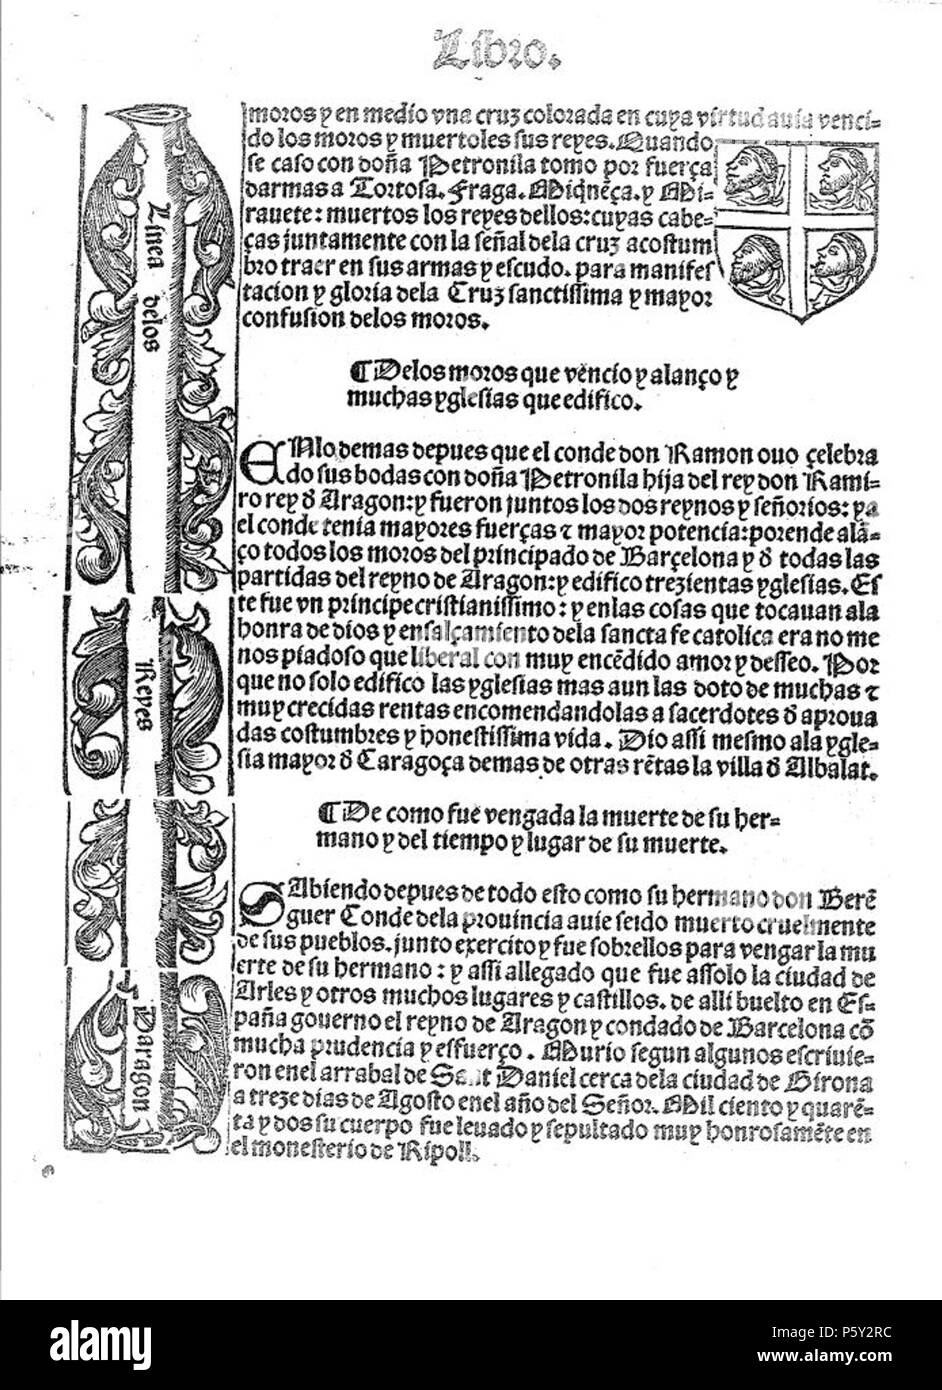 Libro.
moros y en medio vna cruz colorada en cuya virtud auia venci-
do los moros y muertoles sus reyes. Quando
se caso con doña Petronila tomo por fuerça
darmas a Tortosa. Fraga. Miqnẽça. y Mi-
rauete: muertos los reyes dellos: cuyas cabe-
ças juntamente con la señal dela cruz acostum
bro traer en sus armas y escudo. para manifes
tacion y gloria dela Cruz sanctissima y mayor
confusion delos moros.
¶ Delos moros que vẽncio y alanço y
muchas yglesias que edifico.
ENlo demas depues que el conde don Ramon ouo çelebra
do sus bodas con doña Petronila hija del rey don Rami-
ro rey ð Aragon: y fueron juntos los dos reynos y señorios: ya
el conde tenia mayores fuerças ⁊ mayor potencia: porende alã-
ço todos los moros del principado de Barçelona y ð todas las
partidas del reyno de Aragon: y edifico trezientas yglesias. Es
te fue vn principe cristianissimo: y enlas cosas que tocauan ala
honra de dios y ensalçamiento dela sancta fe catolica era no me
nos piadoso que liberal con muy encẽdido amor y desseo. Por
que no solo edifico las yglesias mas aun las doto de muchas ⁊
muy crecidas rentas encomendandolas a sacerdotes ð aproua
das costumbres y honestissima vida. Dio assi mesmo ala ygle-
sia mayor ð Caragoça demas de otras rẽtas la villa ð Albalat.
¶ De como fue vengada la muerte de su her-
mano y del tiempo y lugar de su muerte.
SAbiendo depues de todo esto como su hermano don Berẽ
guer Conde dela prouincia auie seido muerto cruelmente
de sus pueblos. junto exercito y fue sobrellos para vengar la mu
erte de su hermano: y assi allegado que fue assolo la ciudad de
Arles y otros muchos lugares y castillos. de alli buelto en Es-
paña gouerno el reyno de Aragon y condado de Barcelona cõ
mucha prudencia y esfuerço. Murio segun algunos escriuie-
ron enel arrabal de Sant Daniel cerca dela ciudad de Girona
a treze dias de Agosto enel año del Señor. Mil ciento y quarẽ-
ta y dos su cuerpo fue leuado y sepultado muy honrosamẽte en
el monesterio de Ripoll.
Linea delos
Reyes
Daragon
alamy
Image ID: P5Y2RC
www.alamy.com